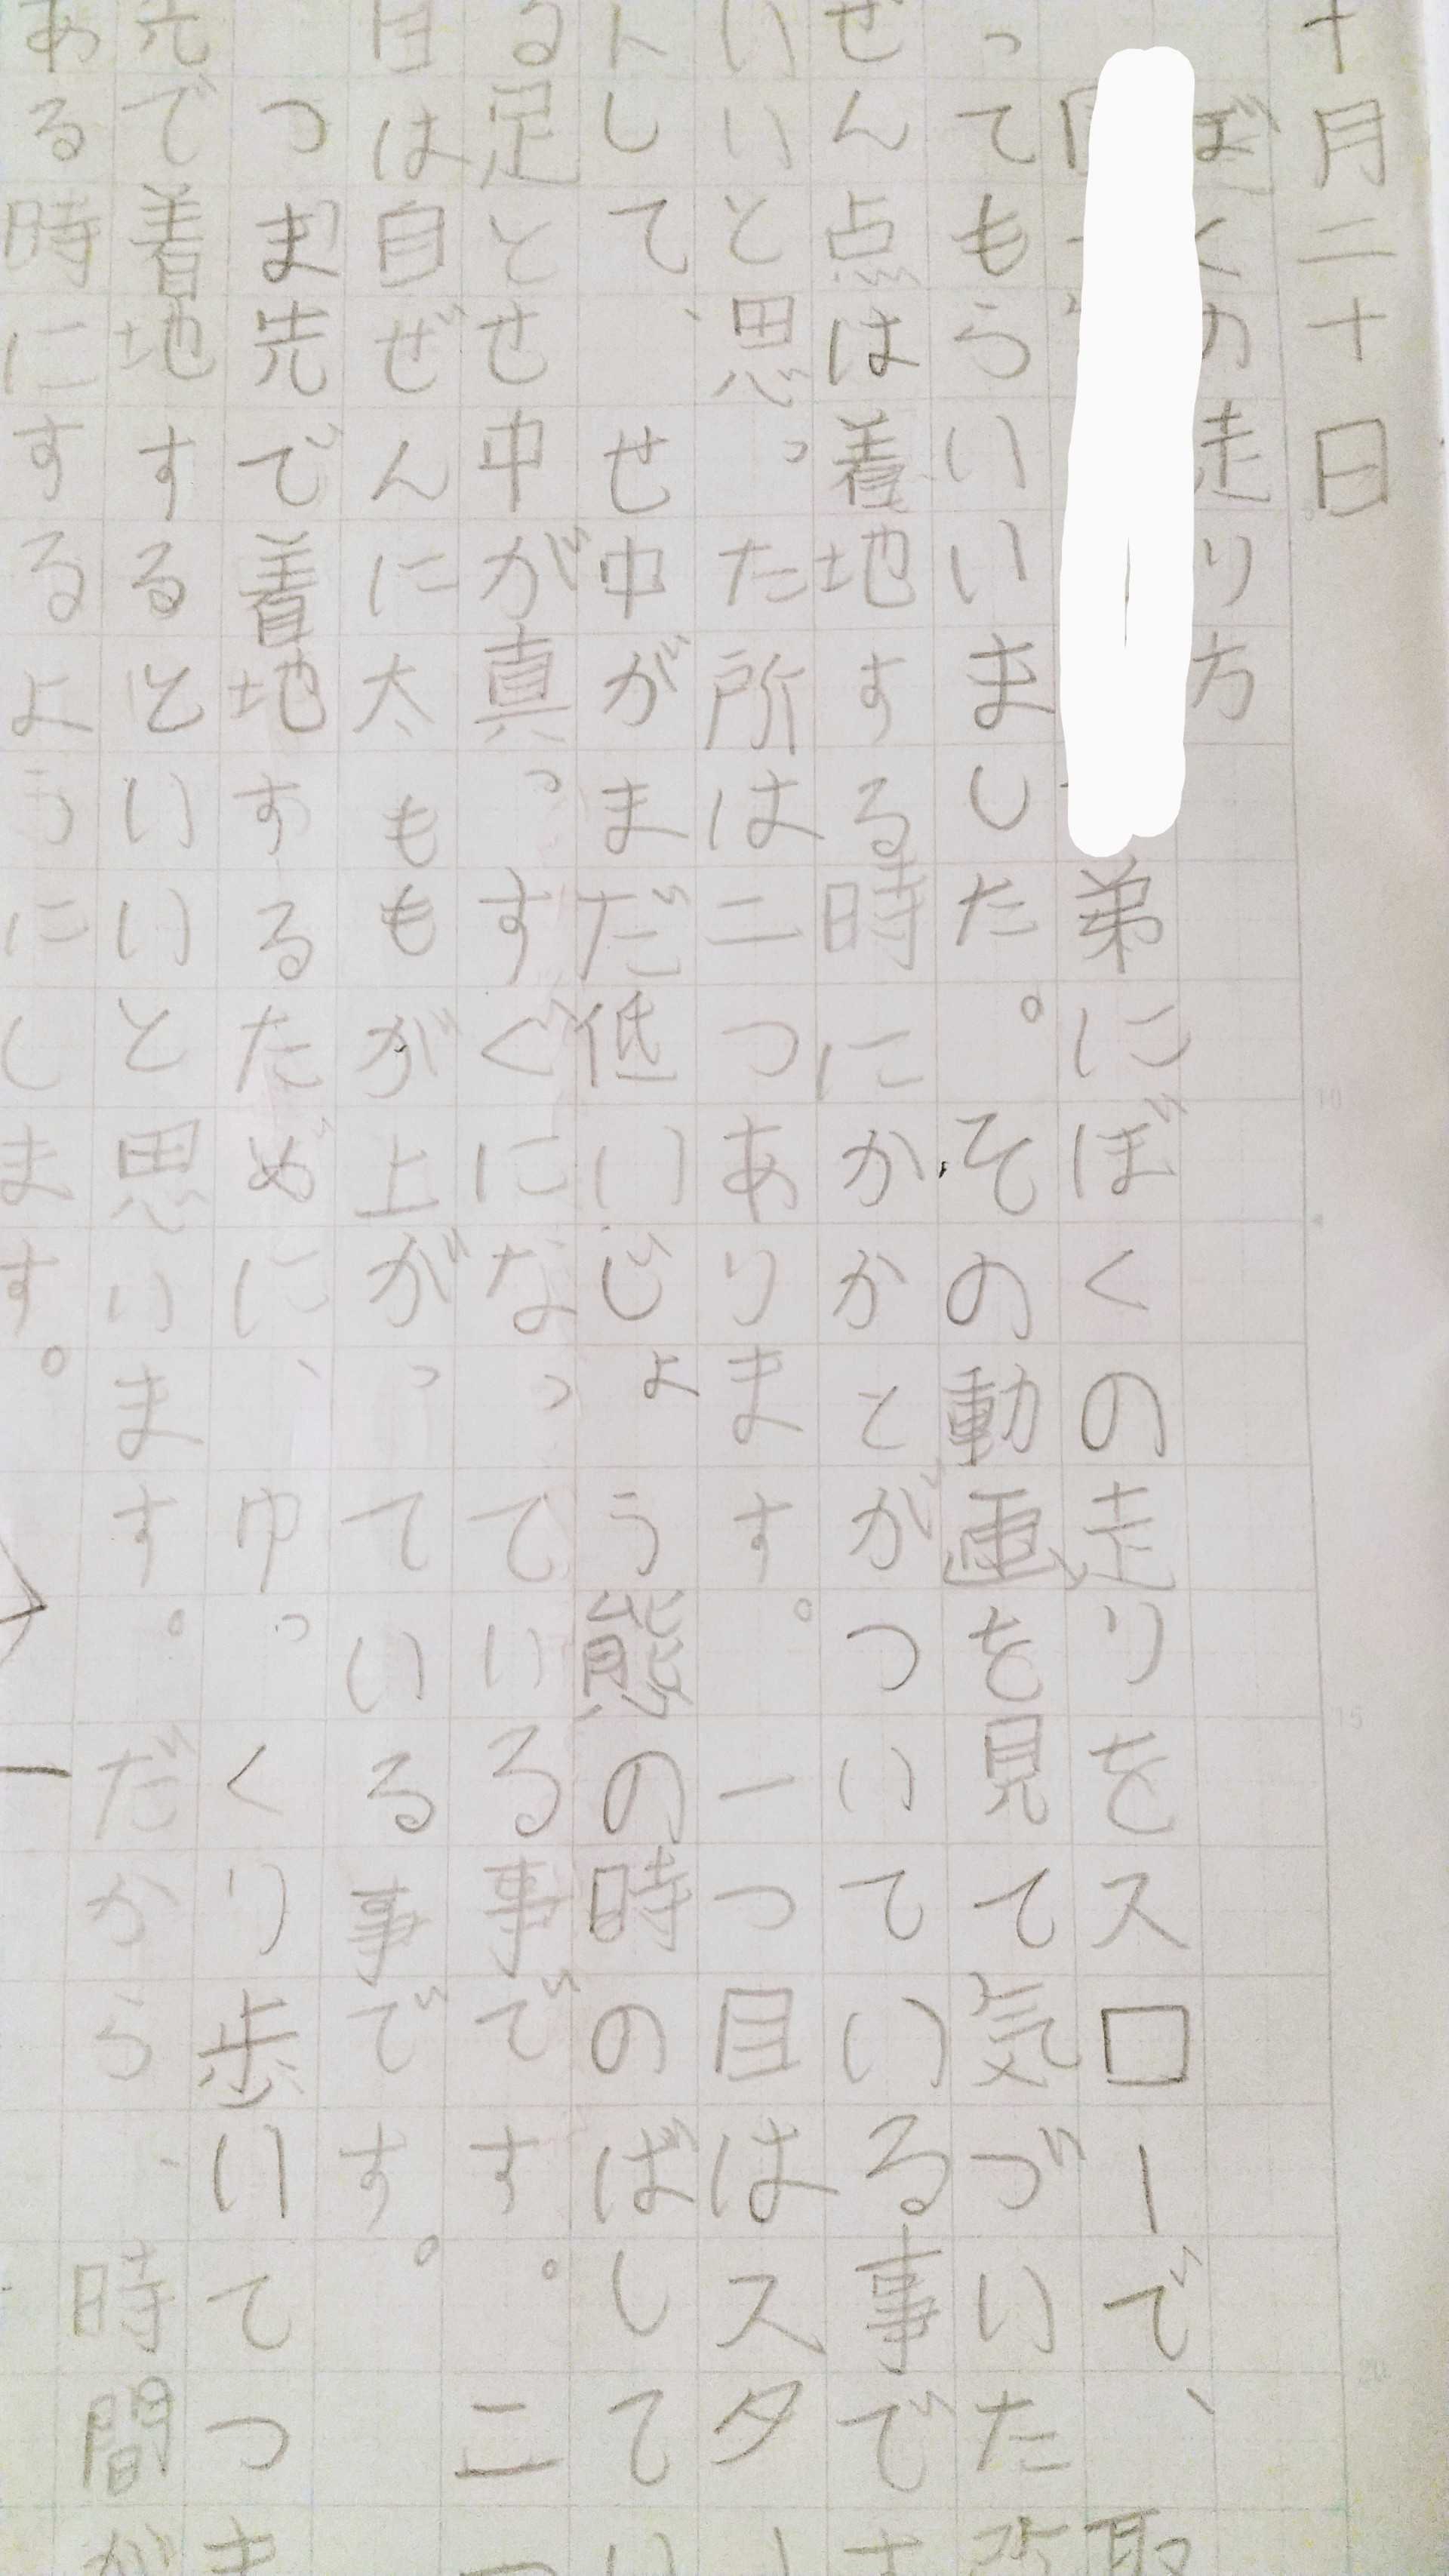 十月二十日
ぼくの走り方
弟にぼくの走りをスローで、取
ってもらいいました。その動画を見て気づいた改
ぜん点は着地する時にかかとがついている事です
いいと思った所は二つあります。一つ目はスター
トして、せ中がまだ低いじょう態の時のばしてい
る足とせ中が真っすぐになっている事です。二つ
目は自ぜんに太ももが上がっている事です。
つま先で着地するために、ゆっくり歩いてつま
先で着地するといいと思います。だから、時間が
ある時にするようにします。